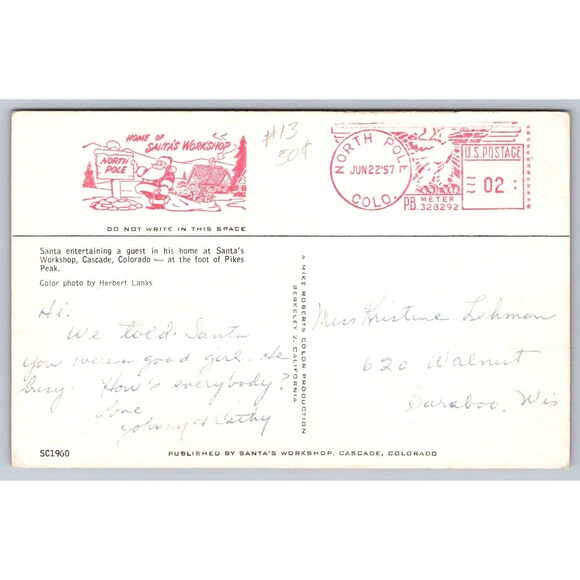 HOME OF
SANTA'S WORKSHOP
NORTH
POLE
#13
50¢
NORTH POLE
JUN 22 '57
COLO.
U.S. POSTAGE
02
P.B. METER
328292
DO NOT WRITE IN THIS SPACE
Santa entertaining a guest in his home at Santa's
Workshop, Cascade, Colorado — at the foot of Pikes
Peak.
Color photo by Herbert Lanks
Hi:
We told Santa
you were a good girl. He
busy. How's everybody?
Love
Johnny & Cathy
A MIKE ROBERTS COLOR PRODUCTION
BERKELEY 2, CALIFORNIA
Miss Kristine Lehman
620 Walnut
Baraboo, Wis
SC1960
PUBLISHED BY SANTA'S WORKSHOP, CASCADE, COLORADO